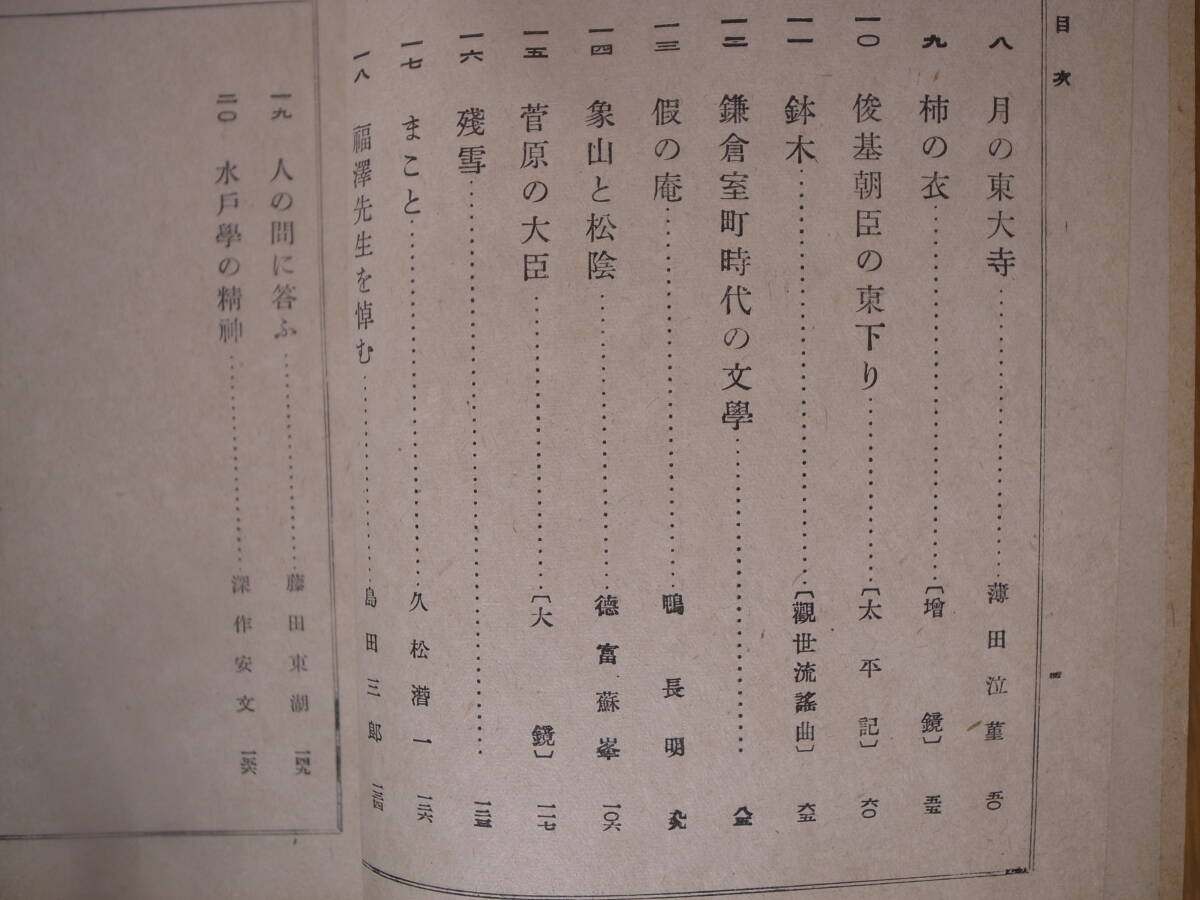 目次
八 月の東大寺 薄田泣菫 五〇
九 柿の衣 〔增鏡〕 五五
一〇 俊基朝臣の東下り 〔太平記〕 六〇
一一 鉢木 〔觀世流謠曲〕 六五
一二 鎌倉室町時代の文學 八五
一三 假の庵 鴨長明 九九
一四 象山と松陰 德富蘇峯 一〇六
一五 菅原の大臣 〔大鏡〕 一一七
一六 殘雪 一二三
一七 まこと 久松潛一 一二六
一八 福澤先生を悼む 島田三郎 一三四
一九 人の問に答ふ 藤田東湖 一四九
二〇 水戶學の精神 深作安文 一五六